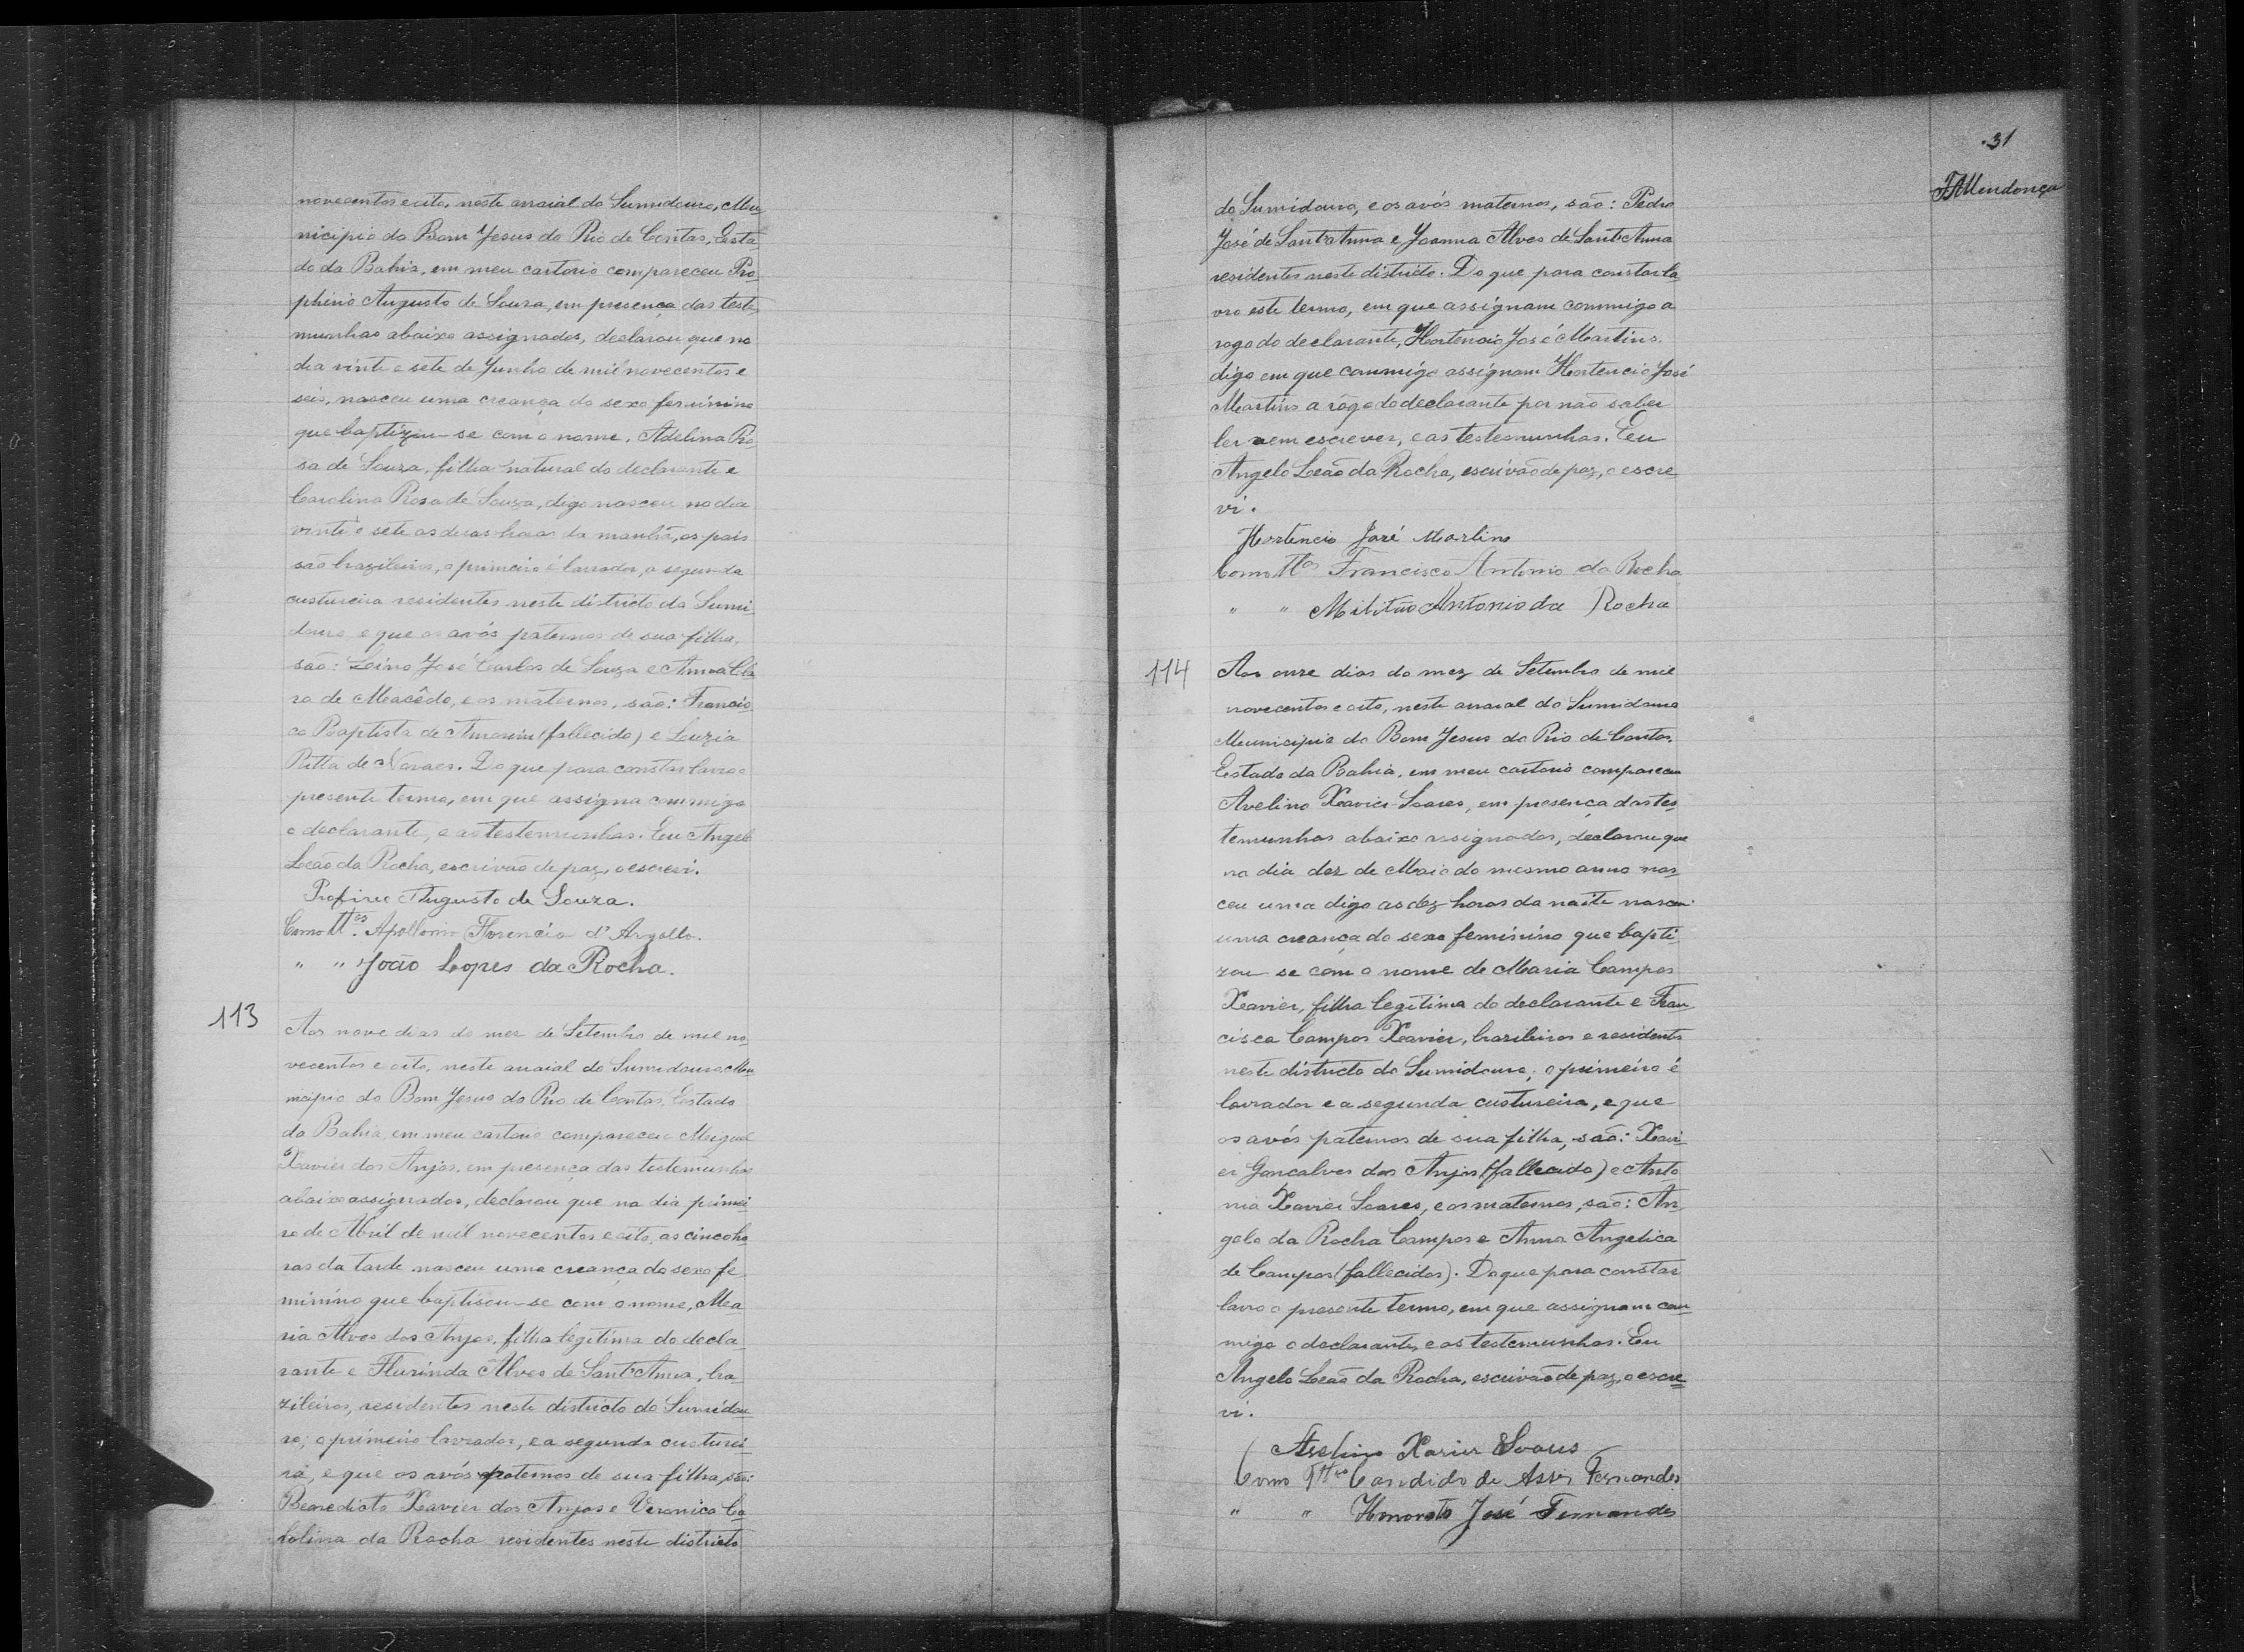 novecentos e oito, neste arraial do Sumidouro, Mu-
nicipio do Bom Jesus do Rio de Contas, Esta
do da Bahia, em meu cartorio compareceu Pro
phirio Augusto de Souza, em presença das teste
munhas abaixo assignados, declarou que no
dia vinte e sete de Junho de mil novecentos e
seis, nasceu uma creança do sexo feminino
que baptizou-se com o nome, Adelina Ro-
sa de Souza, filha natural do declarante e
Carolina Rosa de Souza, digo nasceu no dia
vinte e sete as duas horas da manhã, os pais
são brazileiros, o primeiro é lavrador, a segunda
custureira residentes neste districto do Sumi
douro, e que os avós paternos de sua filha,
são: Lino José Carlos de Souza e Anna Cla
ra de Macêdo, e os maternos, são: Francis-
co Baptista de Amorim (fallecido) e Luzia
Ritta de Novaes. Do que para constar lavro o
presente termo, em que assigna commigo
o declarante, e as testemunhas. Eu Angelo
Leão da Rocha, escrivão de paz, o escrevi.
Profirio Augusto de Souza.
Como ttas. Apollonio Florencio d'Argollo.
" " João Lopes da Rocha.
113
Aos nove dias do mez de Setembro de mil no-
vecentos e oito, neste arraial do Sumidouro Mu
nicipio do Bom Jesus do Rio de Contas, Estado
da Bahia, em meu cartorio compareceu Miguel
Xavier dos Anjos, em presença das testemunhas
abaixo assignados, declarou que no dia primei-
ro de Abril de mil novecentos e oito, as cinco ho
ras da tarde nasceu uma creança do sexo fe
minino que baptisou-se com o nome, Ma
ria Alves dos Anjos, filha legitima do decla-
rante e Flurinda Alves de Sant'Anna, bra-
zileiros, residentes neste districto do Sumidou
ro; o primeiro lavrador, e a segunda custurei-
ra, e que os avós paternos de sua filha, são:
Benedicto Xavier dos Anjos e Veronica Ca
rolina da Rocha residentes neste districto
31
F. Mendonça
do Sumidouro, e os avós maternos, são: Pedro
José de Sant'Anna e Joanna Alves de Sant'Anna
residentes neste districto. Do que para constar la
vro este termo, em que assignam commigo a
rogo do declarante, Hortencio José Martins.
digo em que commigo assignam Hortencio José
Martins a rôgo do declarante por não saber
ler nem escrever, e as testemunhas. Eu
Angelo Leão da Rocha, escrivão de paz, o escre
vi.
Hortencio José Martins
Como ttas Francisco Antonio da Rocha
" " Militão Antonio da Rocha
114
Aos onze dias do mez de Setembro de mil
novecentos e oito, neste arraial do Sumidouro
Municipio do Bom Jesus do Rio de Contas,
Estado da Bahia, em meu cartorio compareceu
Avelino Xavier Soares, em presença das tes
temunhas abaixo assignados, declarou que
no dia dez de Maio do mesmo anno nas-
ceu uma digo as dez horas da noite nasceu
uma creança do sexo feminino que bapti
zou-se com o nome de Maria Campos
Xavier, filha legitima do declarante e Fran
cisca Campos Xavier, brazileiros e residentes
neste districto do Sumidouro; o primeiro é
lavrador e a segunda custureira, e que
os avós paternos de sua filha, são: Xavi-
er Goncalves dos Anjos (fallecido) e Anto
nia Xavier Soares, e os maternos, são: An-
gelo da Rocha Campos e Anna Angelica
de Campos (fallecidos). Do que para constar
lavro o presente termo, em que assignam com
migo o declarante, e as testemunhas. Eu
Angelo Leão da Rocha, escrivão de paz, o escre-
vi.
Avelino Xavier Soares
Como Ttas Candido de Assis Fernandes
" " Honorato José Fernandes